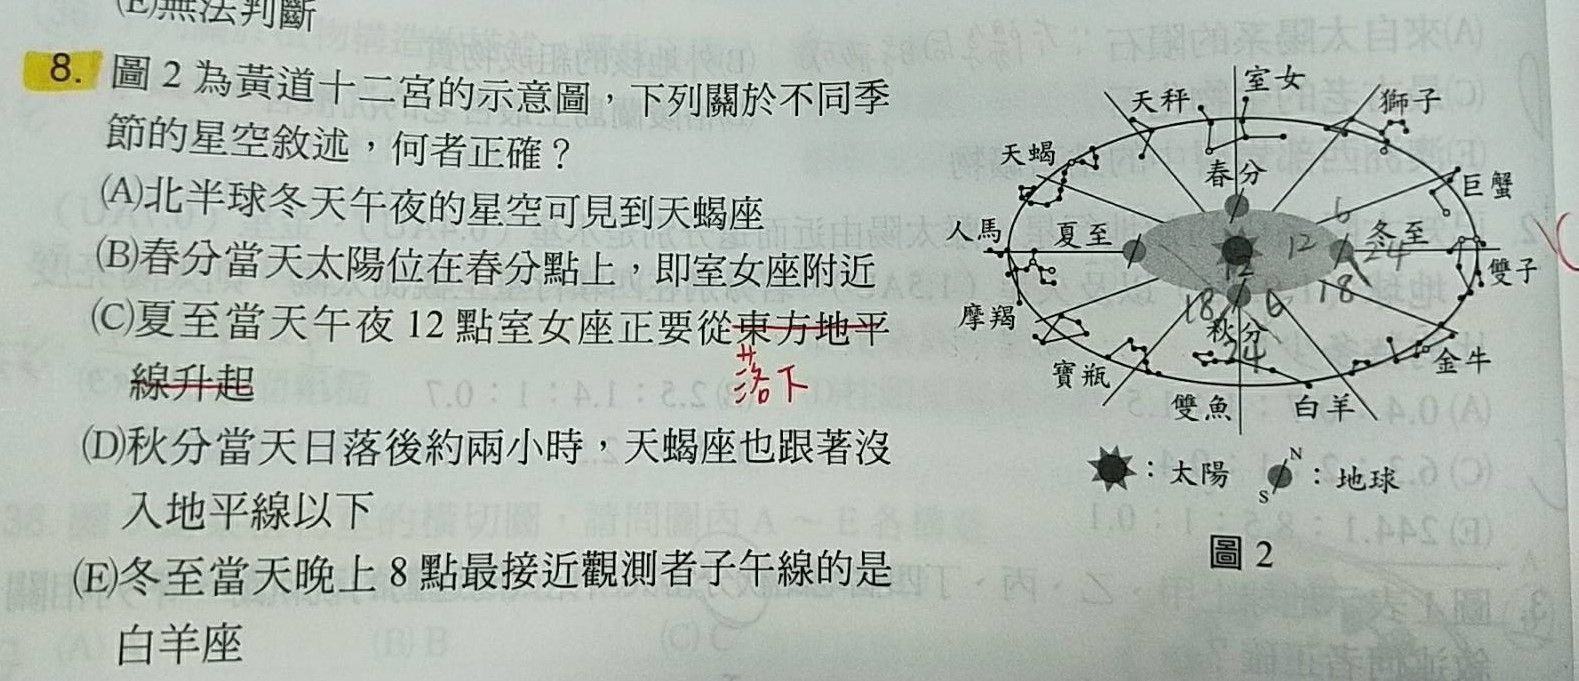 (E)無法判斷
8. 圖 2 為黃道十二宮的示意圖，下列關於不同季
節的星空敘述，何者正確？
(A)北半球冬天午夜的星空可見到天蝎座
(B)春分當天太陽位在春分點上，即室女座附近
(C)夏至當天午夜 12 點室女座正要從東方地平
線升起
落下
(D)秋分當天日落後約兩小時，天蝎座也跟著沒
入地平線以下
(E)冬至當天晚上 8 點最接近觀測者子午線的是
白羊座
室女
天秤
獅子
天蝎
春分
巨蟹
人馬
夏至
冬至
雙子
6
12
24
18
12
18
6
秋分
24
摩羯
寶瓶
金牛
雙魚
白羊
：太陽
N
S
：地球
圖 2